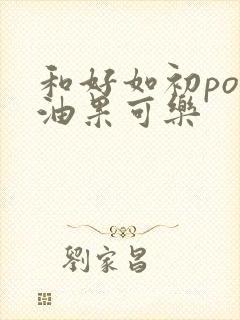 和好如初po
油果可樂
劉家昌